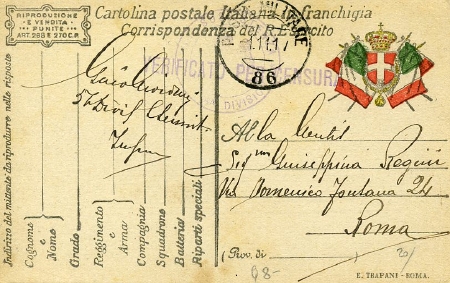 RIPRODUZIONE
E VENDITA
PUNITE
ART. 288 E 270 C.P.
Cartolina postale Italiana in franchigia
Corrispondenza del R. Esercito
MILITARE
.11.17
86
VERIFICATO PER CENSURA
DIVIS
Indirizzo del mittente da riprodurre nelle risposte
Cognome e Nome
Grado
Reggimento e Arma
Compagnia
Squadrone
Batteria
Riparti speciali
Alla Gentil
Seg Giuseppina Regini
Via Domenico Fontana 24
Roma
(Prov. di
20/
98-
E. TRAPANI - ROMA.